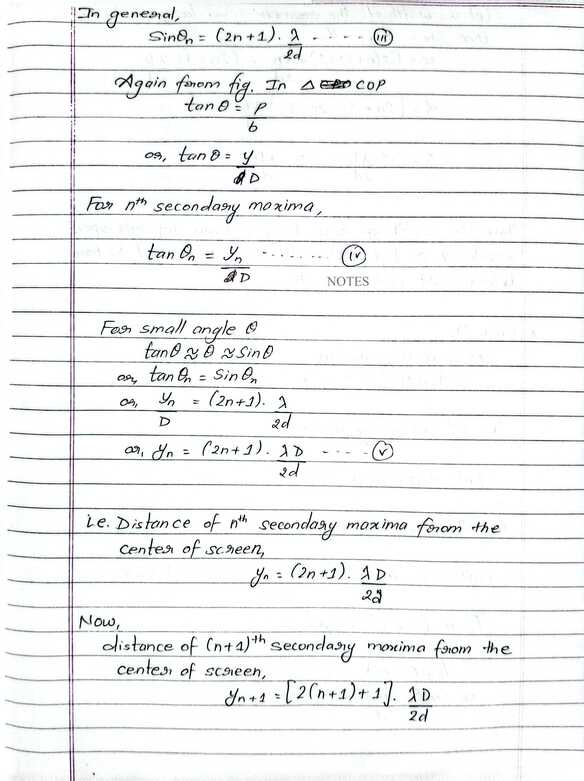 In general,
Sinθn = (2n+1). λ/2d ----- (iii)
Again from fig. In △ COP
tanθ = P/b
or, tanθ = y/D
For nth secondary maxima,
tan θn = yn/D ........ (iv)
NOTES
For small angle θ
tanθ ≈ θ ≈ Sinθ
or, tanθn = Sinθn
or, yn/D = (2n+1). λ/2d
or, yn = (2n+1). λD/2d ---- (v)
i.e. Distance of nth secondary maxima from the
center of screen,
yn = (2n+1). λD/2d
Now,
distance of (n+1)th secondary maxima from the
center of screen,
yn+1 = [2(n+1)+1]. λD/2d